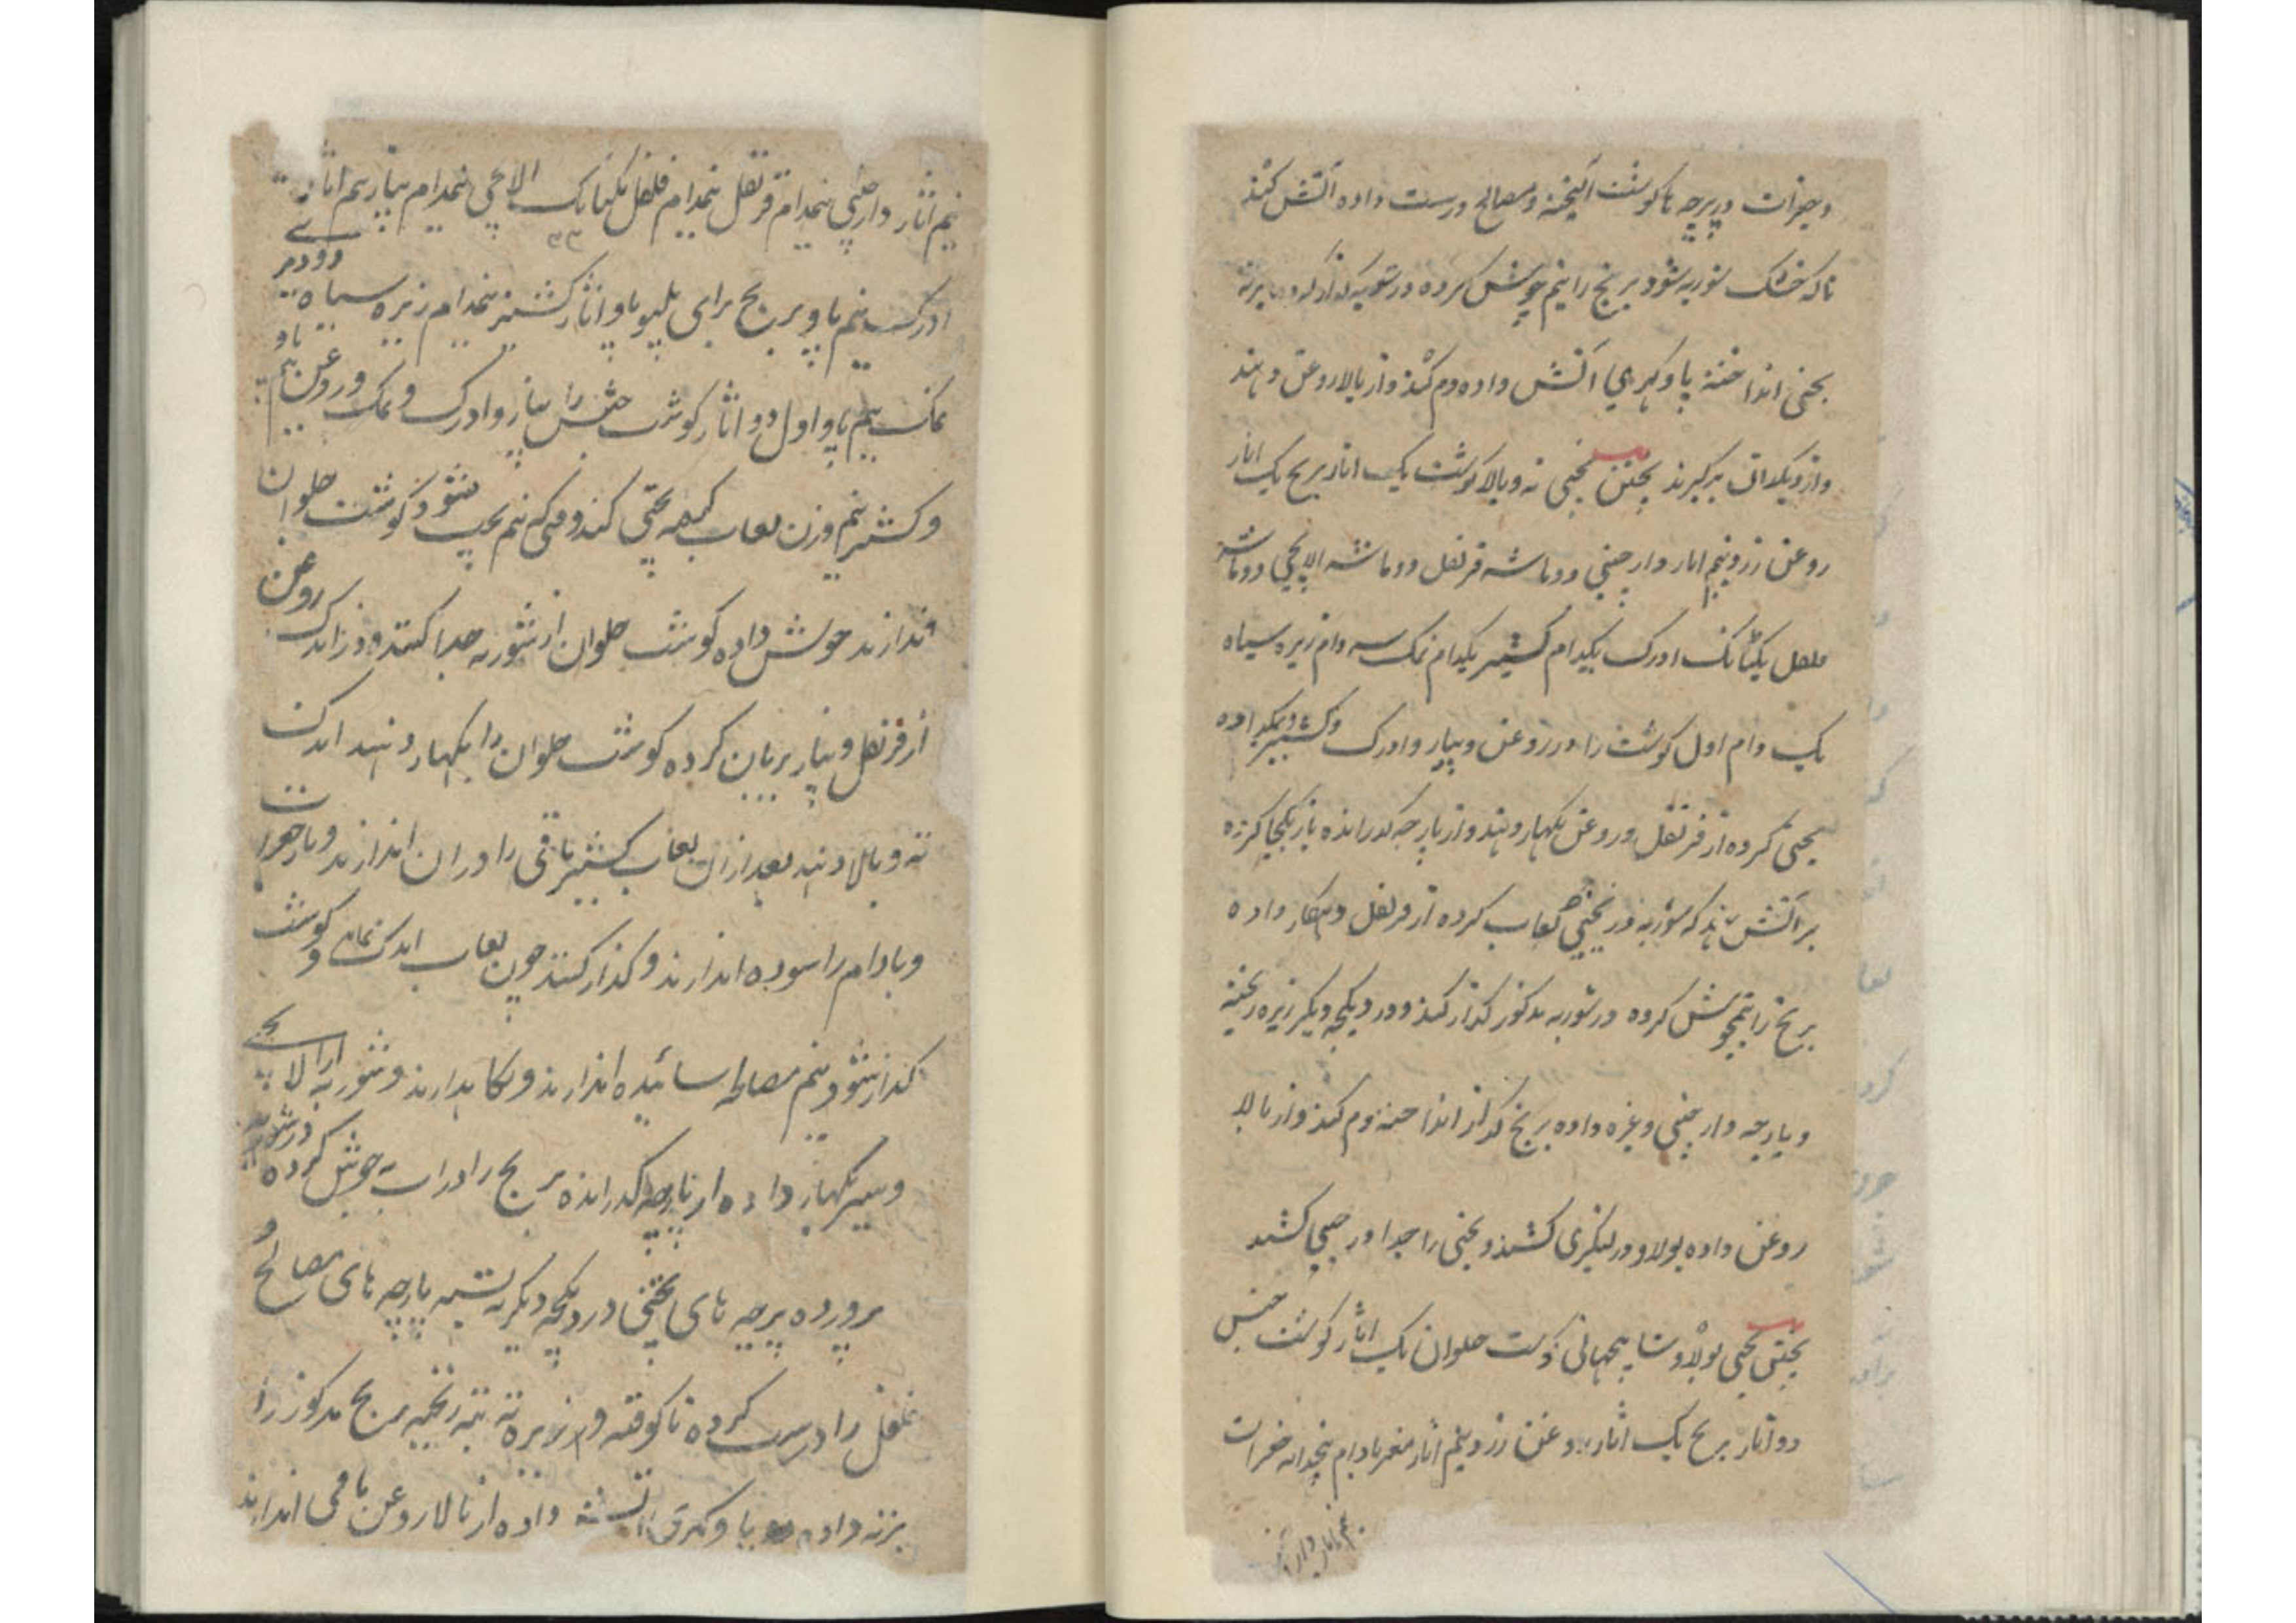 و جغرات در پرچه ها گوشت آمیخته و مصالح درست داده آتش کنند
تا که خشک شوربه شود برنج را نیم جوش کرده در شوربه گداز کرده برته
یخنی انداخته پاو گهری آتش داده دم کنند و از بالا روغن دهند
و از دیگدان برگیرند پختن یخنی ته و بالا گوشت یک اثار برنج یک اثار
روغن زرد نیم اثار دارچینی دو ماشه قرنفل دو ماشه الایچی دو ماشه
فلفل یکتانک ادرک یکدام کشنیز یکدام نمک سه دام زیره سیاه
یک دام اول گوشت را در روغن و پیاز و ادرک و کشنیز و نمک داده
یخنی کرده از قرنفل و روغن بگهار دهند و از پارچه گذرانده باز یکجا کرده
بر آتش نهند که شوربه در یخنی لعاب کرده از قرنفل بگهار داده
برنج را نیمجوش کرده در شوربه مذکور گداز کنند و در دیگچه دیگر زیره ریخته
و پارچه دارچینی و غیره داده برنج گداز انداخته دم کنند و از بالا
روغن داده پولاو در لنگری کشند و یخنی را جدا در چینی کشند
پختن یخنی پولاو شاهجهانی گوشت حلوان یک اثار گوشت جنس
دو اثار برنج یک اثار روغن زرد دو نیم اثار مغز بادام جغرات
نیم اثار دار
نیم اثار دارچینی نیمدام قرنفل نیمدام فلفل یکتانک الایچی نیمدام پیاز نیم اثار
ادرک نیم پاو برنج برای پلیو پاو اثار کشنیز نیمدام زیره سیاه دو درم
نمک نیم پاو اول دو اثار گوشت جنس را پیاز و ادرک و نمک و روغن نیم پاو
و کشنیز نیم وزن لعاب یخنی کنند وقتی که نیم پخت شود گوشت حلوان
اندازند جوش داده گوشت حلوان از شوربه جدا کنند و در اندک روغن
از قرنفل و پیاز بریان کرده گوشت حلوان را بگهار دهند اندک
ته و بالا دهند بعد از آن لعاب کشنیز باقی را در آن اندازند و بار جغرات
و بادام را سوده اندازند و گداز کنند چون لعاب اندک نماید و گوشت
گداز شود نیم مصالحه سائیده اندازند و نگاه دارند و شوربه را از الایچی
و سیر بگهار داده از پارچه گذرانده برنج را در آب جوش کرده در شوربه
پرورده پرچه های یخنی در دیگچه دیگر پارچه های مصالح و
فلفل را درست کرده ناکوفته و زیره ته ریخته برنج مذکور را
برته داده پاو گهری آتش داده از بالا روغن باقی اندازند